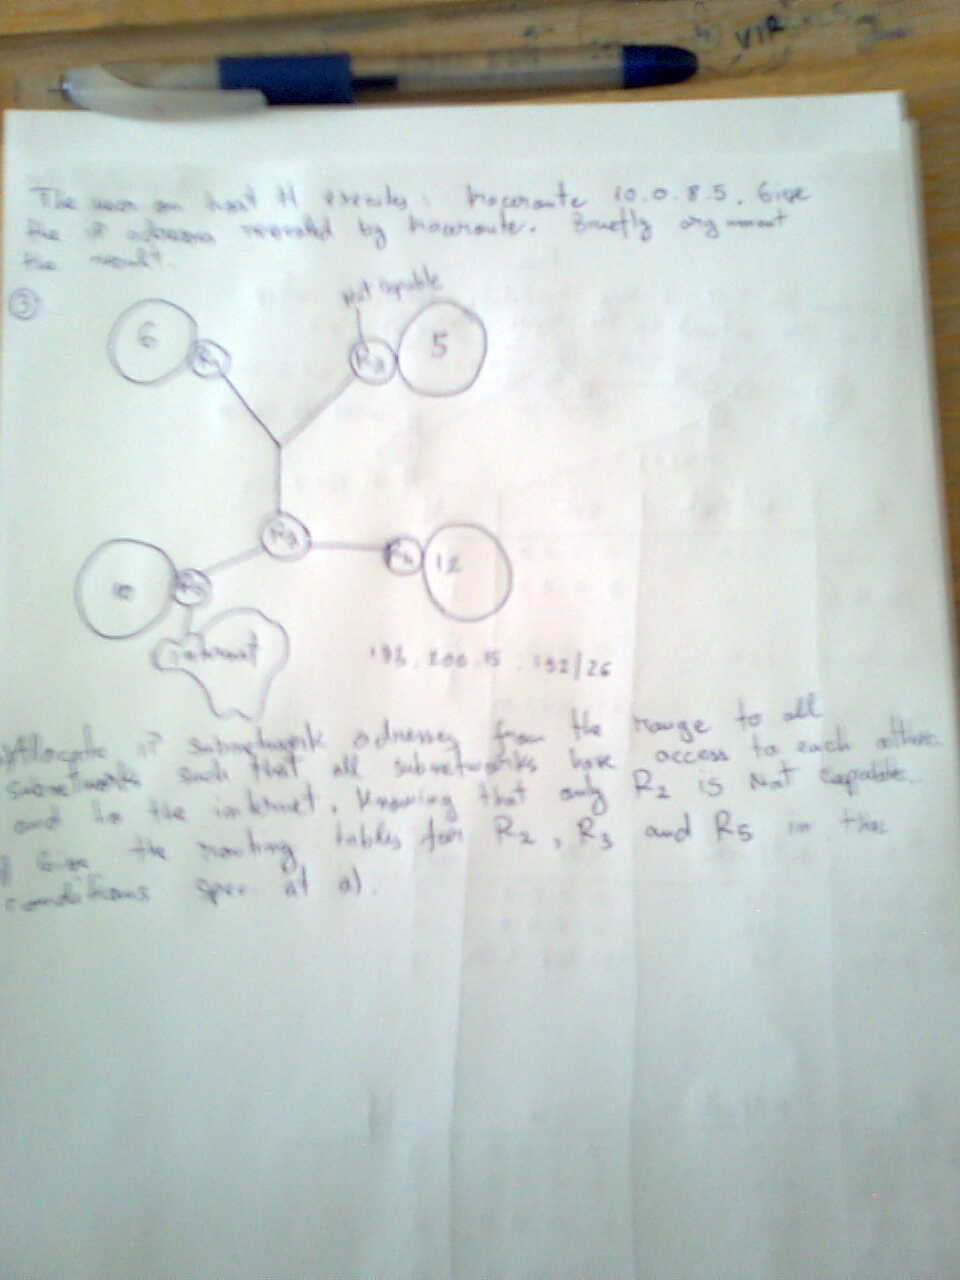 VIR
The user on host H executes: traceroute 10.0.8.5. Give
the IP adresses revealed by traceroute. Briefly argument
the result.
3
Not capable
6
5
R2
R3
R4
12
10
R5
internet
200.15.192/26
Allocate IP subnetwork adresses from the range to all
subnetworks such that all subnetworks have access to each other
and to the internet. Knowing that only R2 is Not capable.
Give the routing tables for R2, R3 and R5 in the
conditions spec. at a).